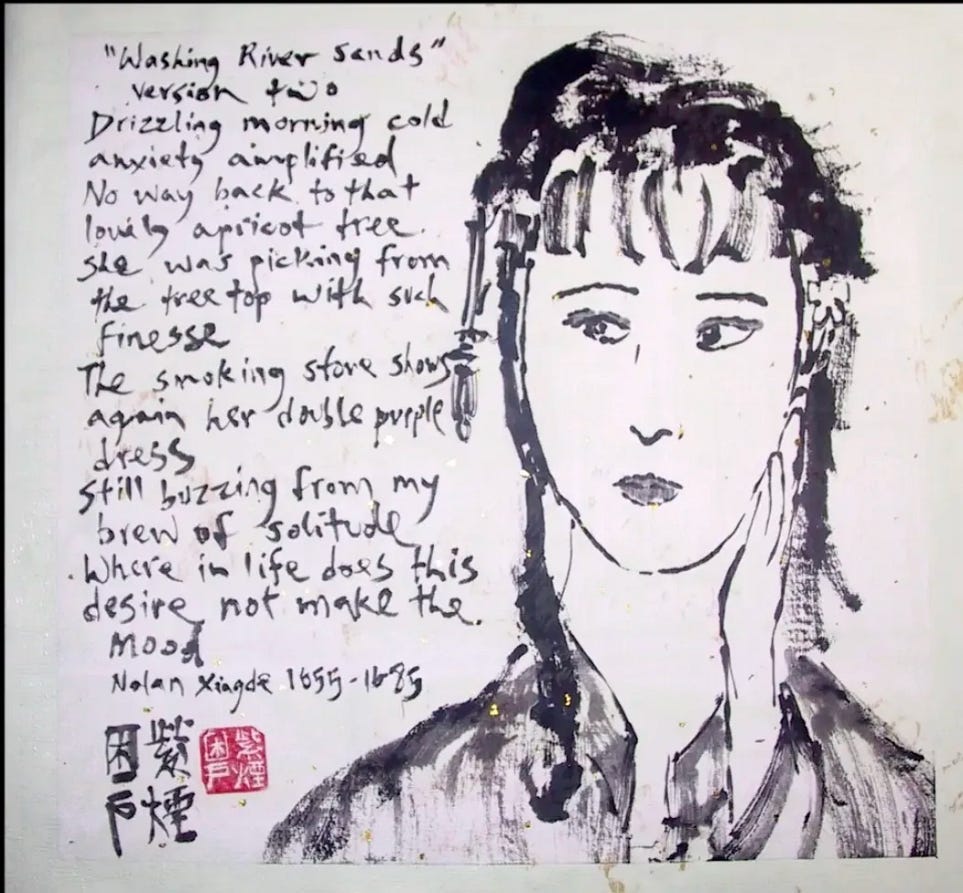 "Washing River Sands"
version two
Drizzling morning cold
anxiety amplified
No way back to that
lovely apricot tree.
She was picking from
the tree top with such
finesse
The smoking stove shows
again her double purple
dress
Still buzzing from my
brew of solitude
Where in life does this
desire not make the
mood
Nolan Xiagde 1655-1685
紫煙
困戶
紫煙
困戶